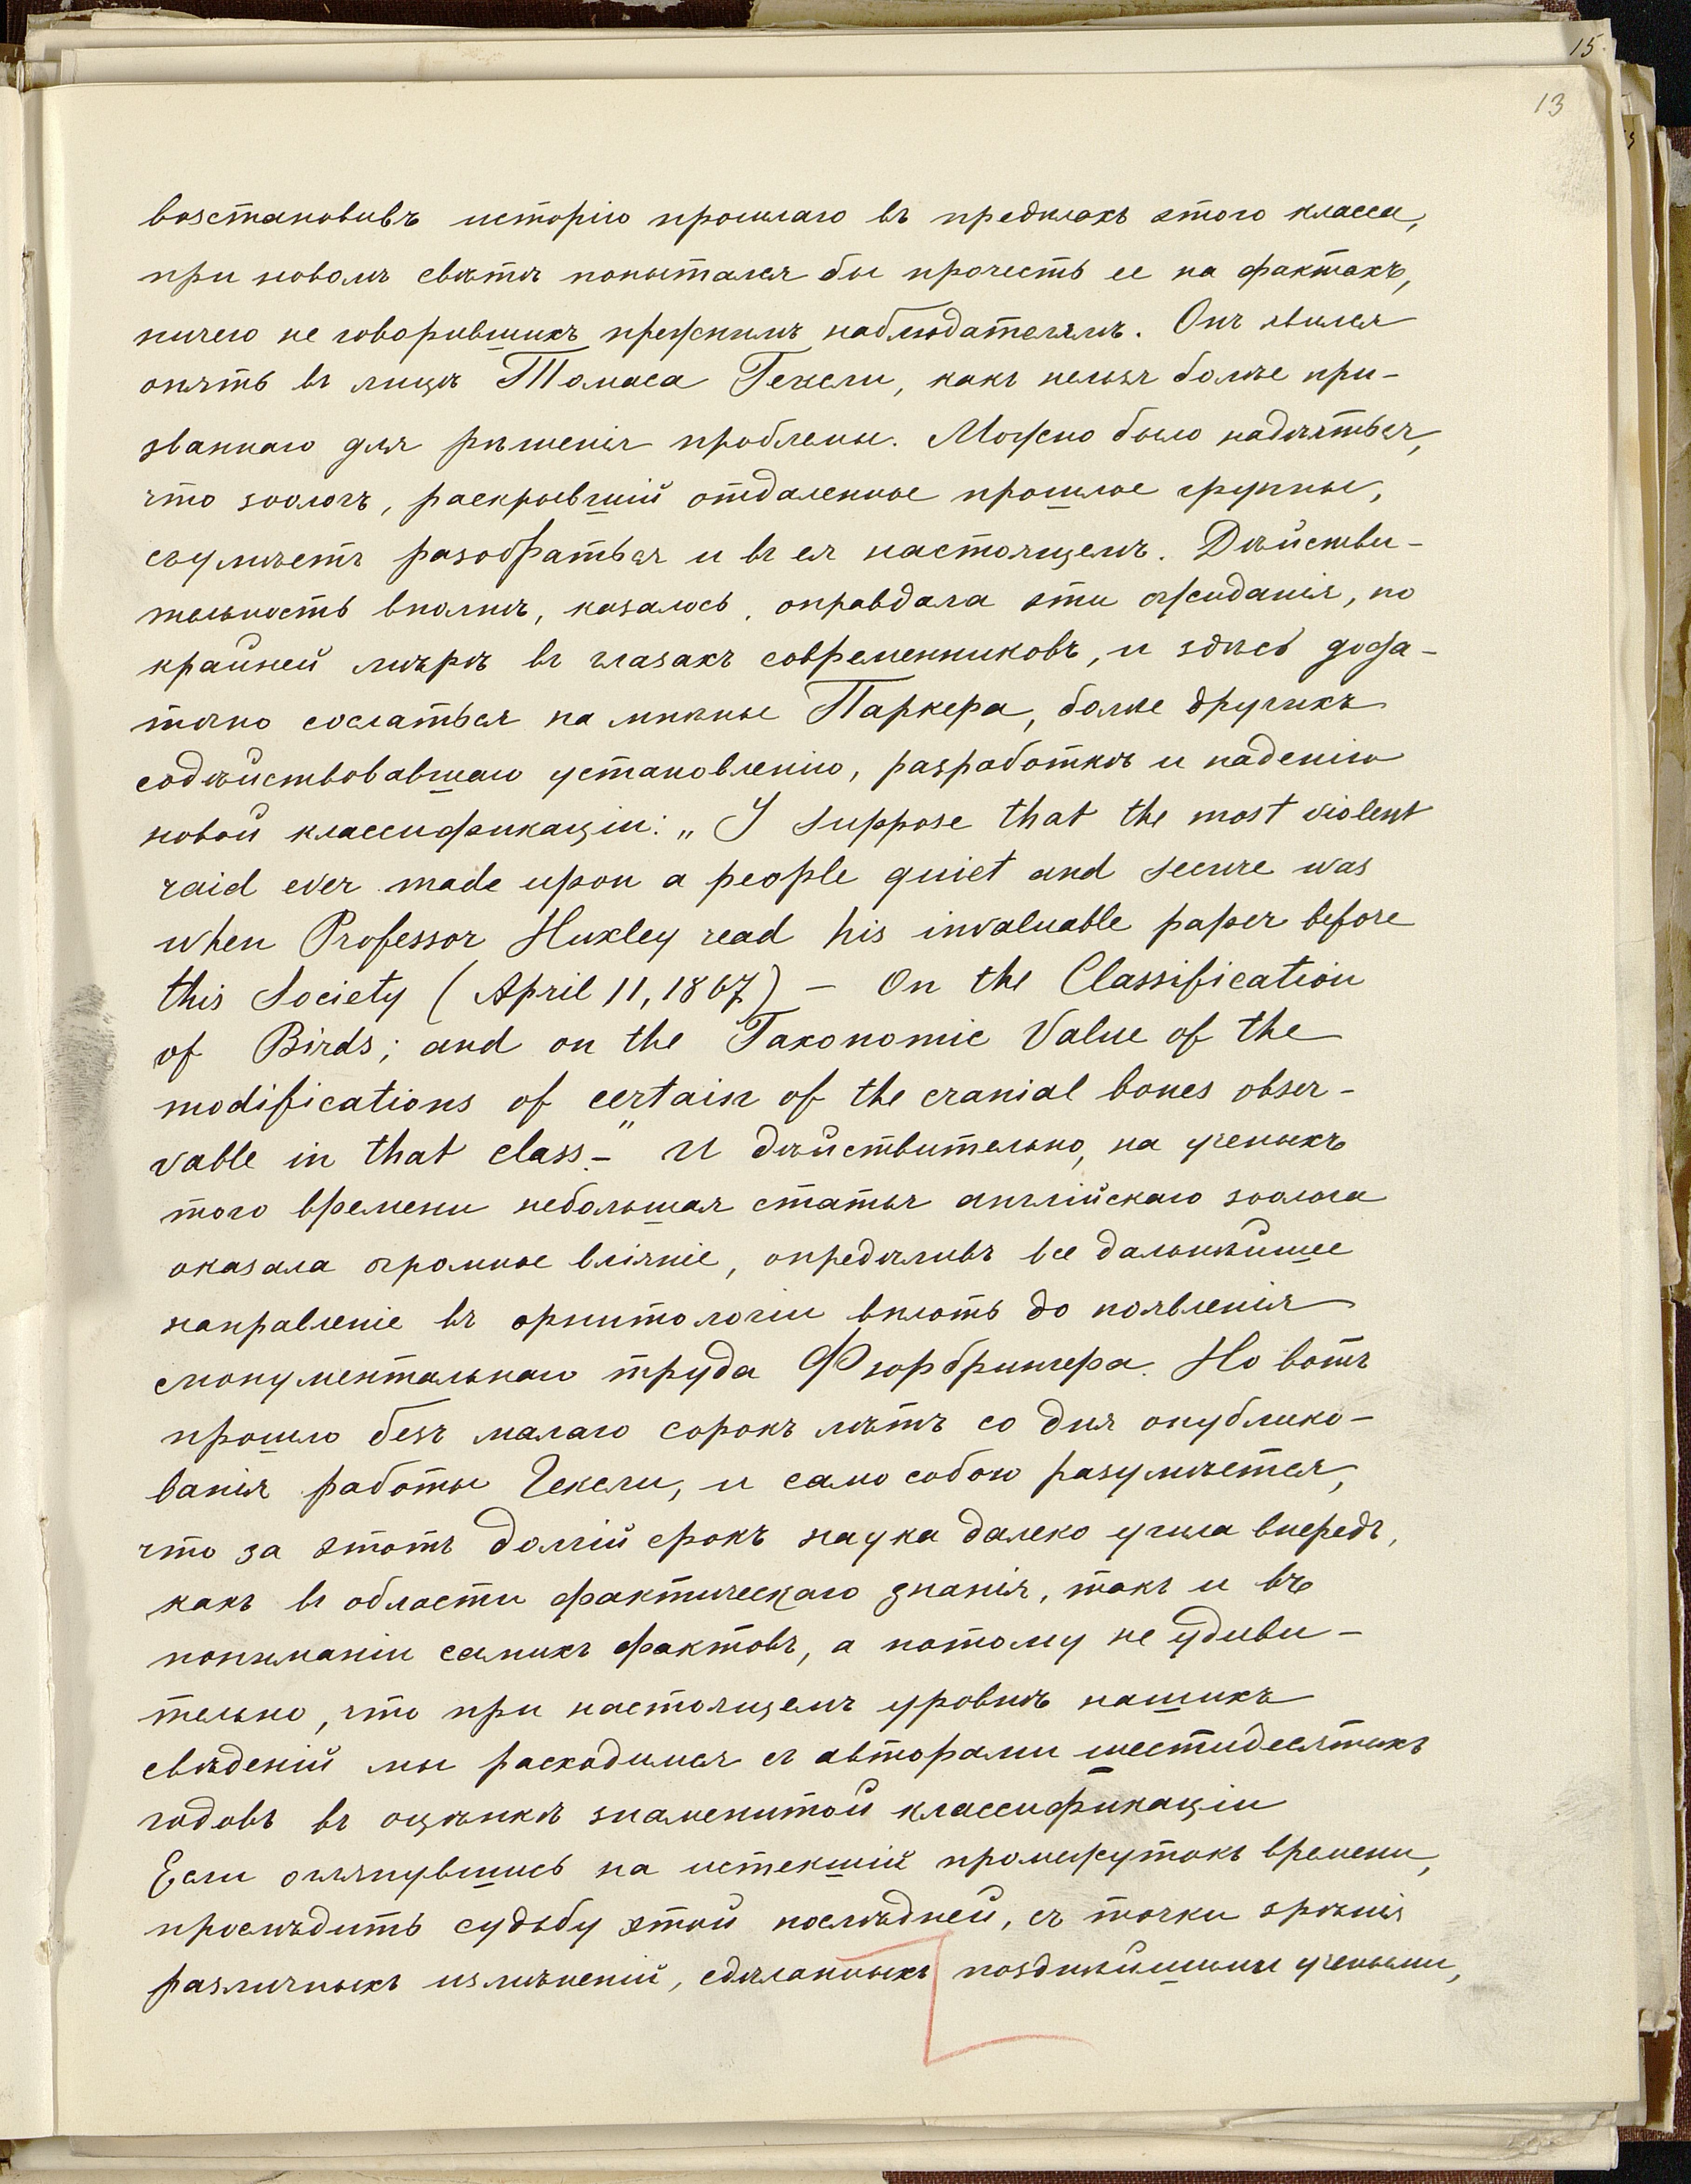 15
13
возстановивъ исторію прошлаго въ предѣлахъ этого класса,
при новомъ свѣтѣ попытался бы прочесть ее на фактахъ,
ничего не говорившихъ прежнимъ наблюдателямъ. Онъ явился
опять въ лицѣ Томаса Гексли, какъ нельзя болѣе при-
званнаго для рѣшенія проблемы. Можно было надѣяться,
что зоологъ, раскрывшій отдаленное прошлое группы,
съумѣетъ разобраться и въ ея настоящемъ. Дѣйстви-
тельность вполнѣ, казалось, оправдала эти ожиданія, по
крайней мѣрѣ въ глазахъ современниковъ, и здѣсь доста-
точно сослаться на мнѣніе Паркера, болѣе другихъ
содѣйствовавшаго установленію, разработкѣ и паденію
новой классификаціи: „I suppose that the most violent
raid ever made upon a people quiet and secure was
when Professor Huxley read his invaluable paper before
this Society (April 11, 1867) – On the Classification
of Birds; and on the Taxonomic Value of the
modifications of certain of the cranial bones obser-
vable in that class.–" И дѣйствительно, на ученыхъ
того времени небольшая статья англійскаго зоолога
оказала огромное вліяніе, опредѣливъ все дальнѣйшее
направленіе въ орнитологіи вплоть до появленія
монументальнаго труда Фюрбрингера. Но вотъ
прошло безъ малаго сорокъ лѣтъ со дня опублико-
ванія работы Гексли, и само собою разумѣется,
что за этотъ долгій срокъ наука далеко ушла впередъ,
какъ въ области фактическаго знанія, такъ и въ
пониманіи самихъ фактовъ, а потому не удиви-
тельно, что при настоящемъ уровнѣ нашихъ
свѣдѣній мы расходимся съ авторами шестидесятыхъ
годовъ въ оцѣнкѣ знаменитой классификаціи
Если оглянувшись на истекшій промежутокъ времени,
прослѣдить судьбу этой послѣдней, съ точки зрѣнія
различныхъ измѣненій, сдѣланныхъ позднѣйшими учеными,